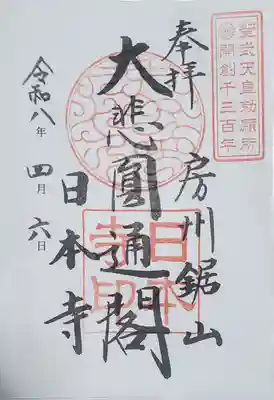 奉拝
房州鋸山
大悲圓通閣
日本寺
令和八年四月六日
聖武天皇勅願所
開創千三百年
日本寺印